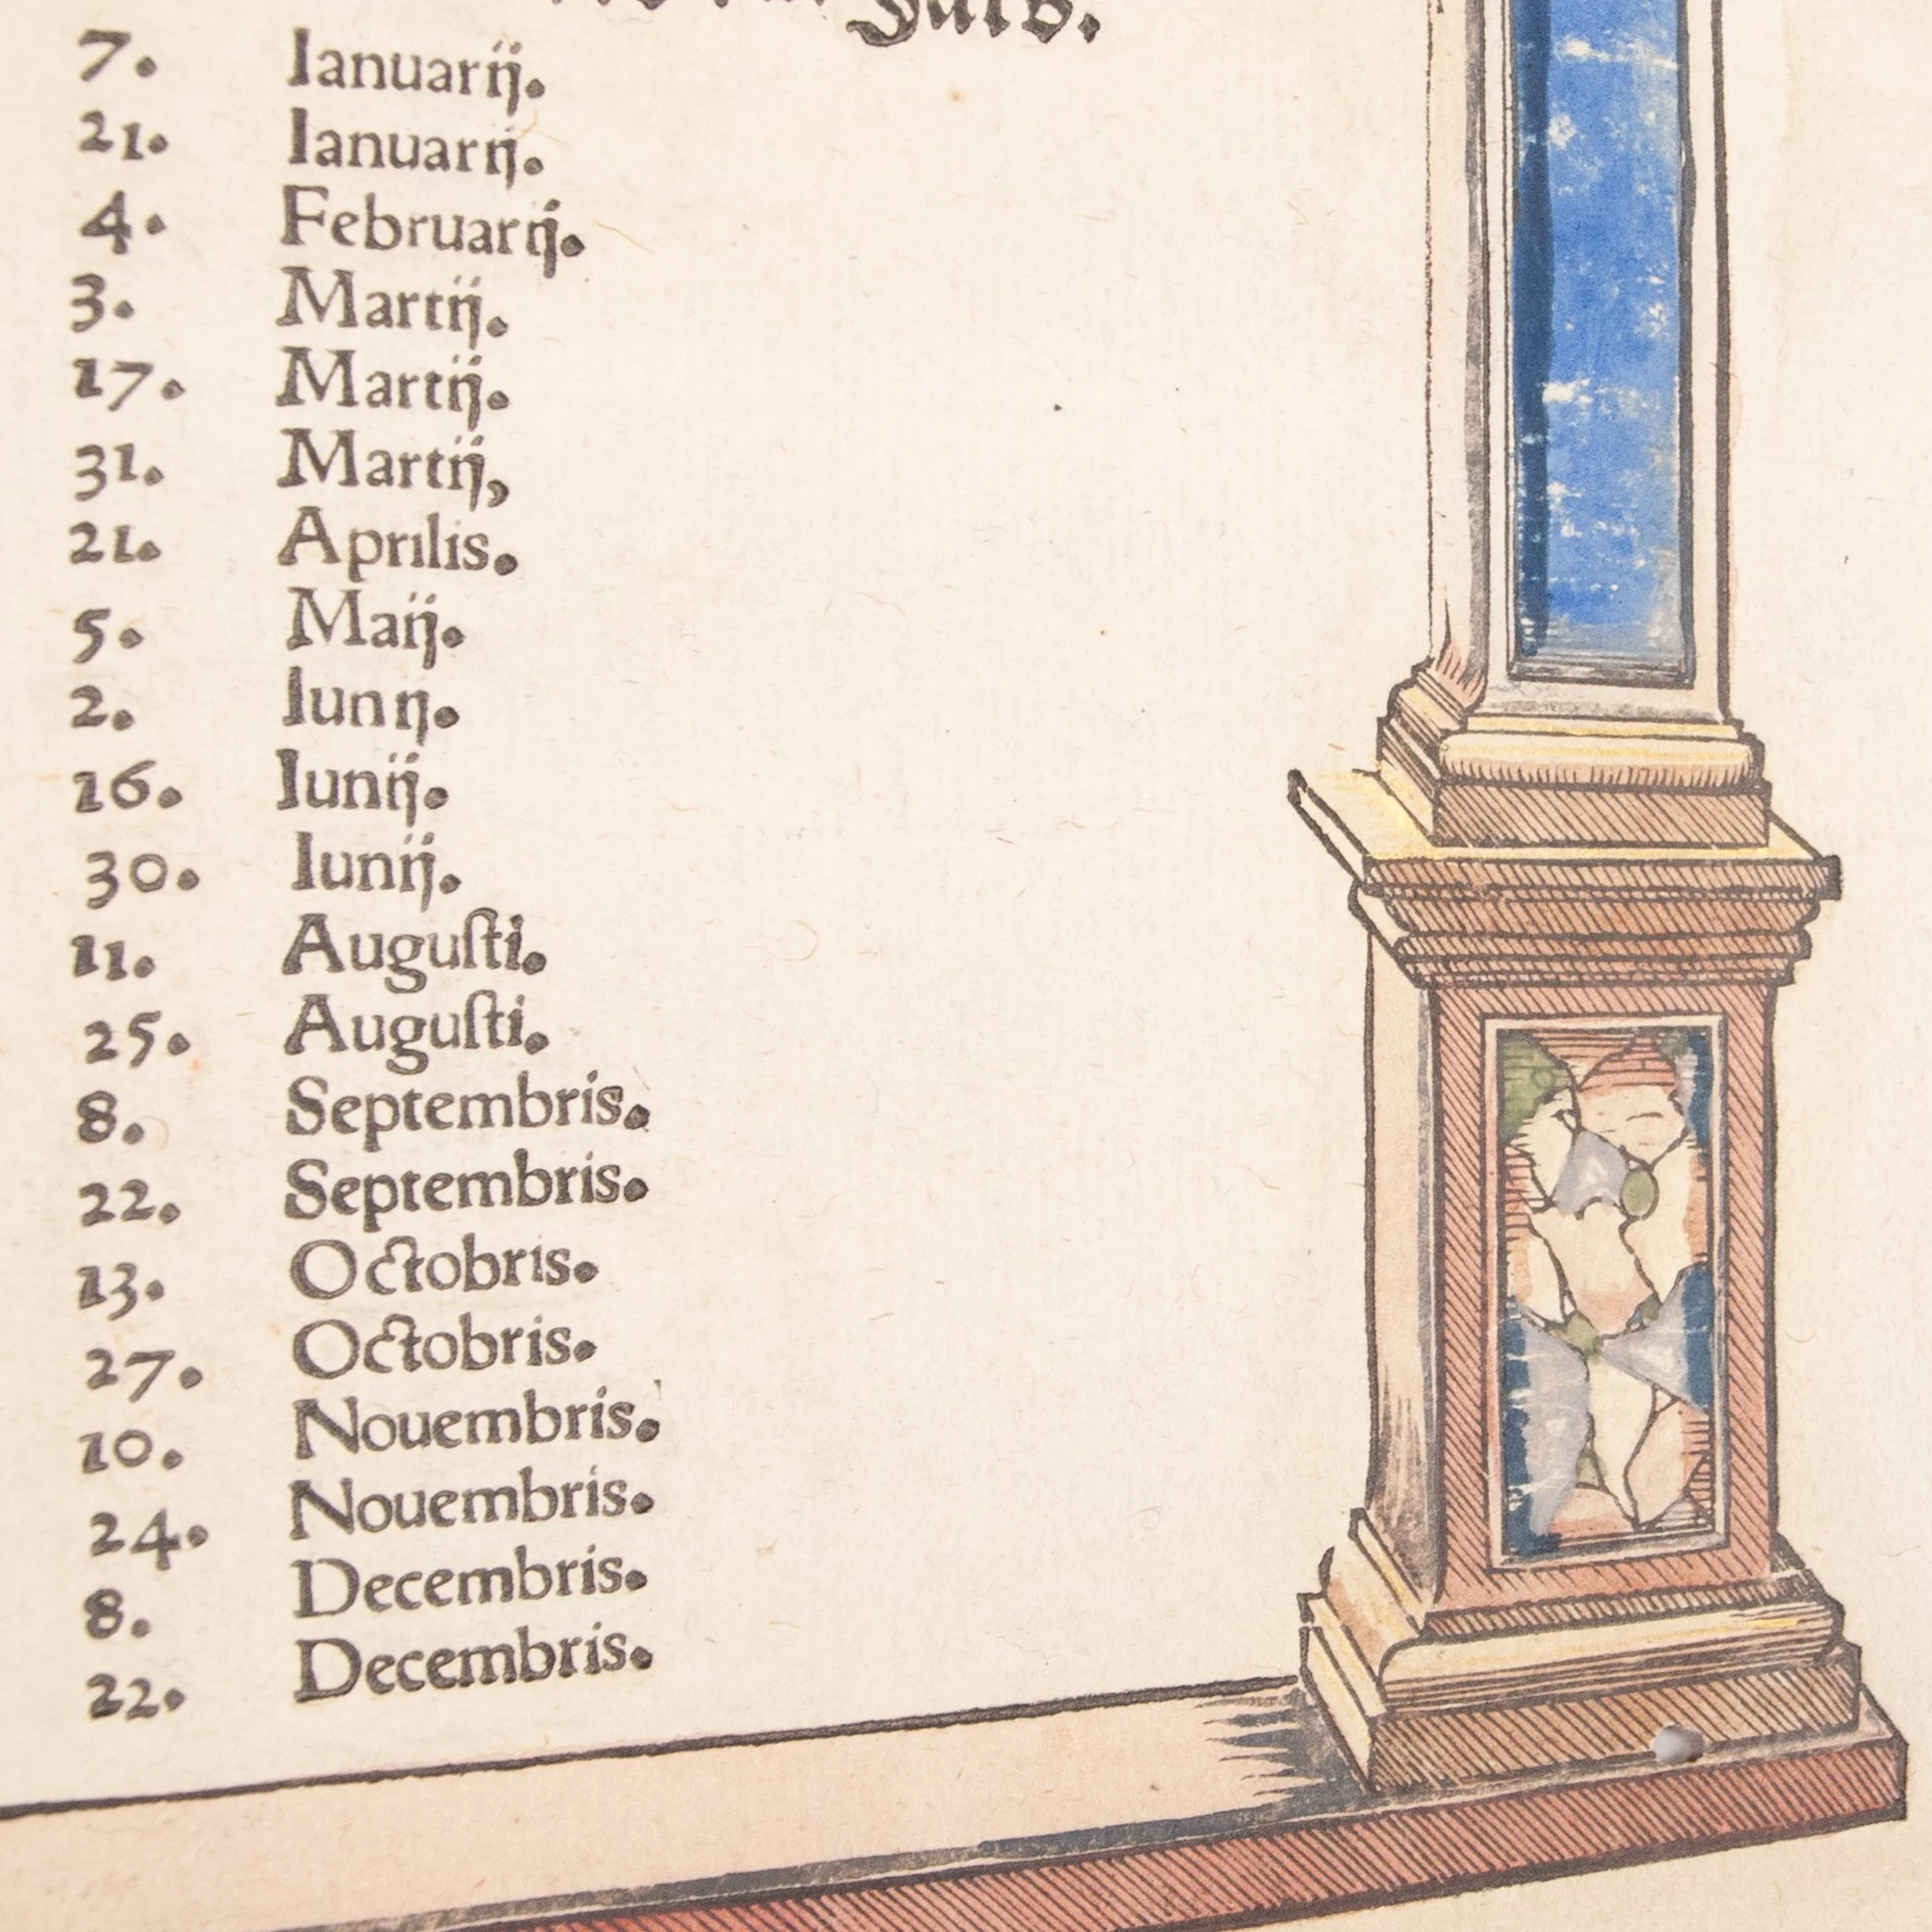 7. Ianuarij.
21. Ianuarij.
4. Februarij.
3. Martij.
17. Martij.
31. Martij,
21. Aprilis.
5. Maij.
2. Iunij.
16. Iunij.
30. Iunij.
11. Auguſti.
25. Auguſti.
8. Septembris.
22. Septembris.
13. Octobris.
27. Octobris.
10. Nouembris.
24. Nouembris.
8. Decembris.
22. Decembris.